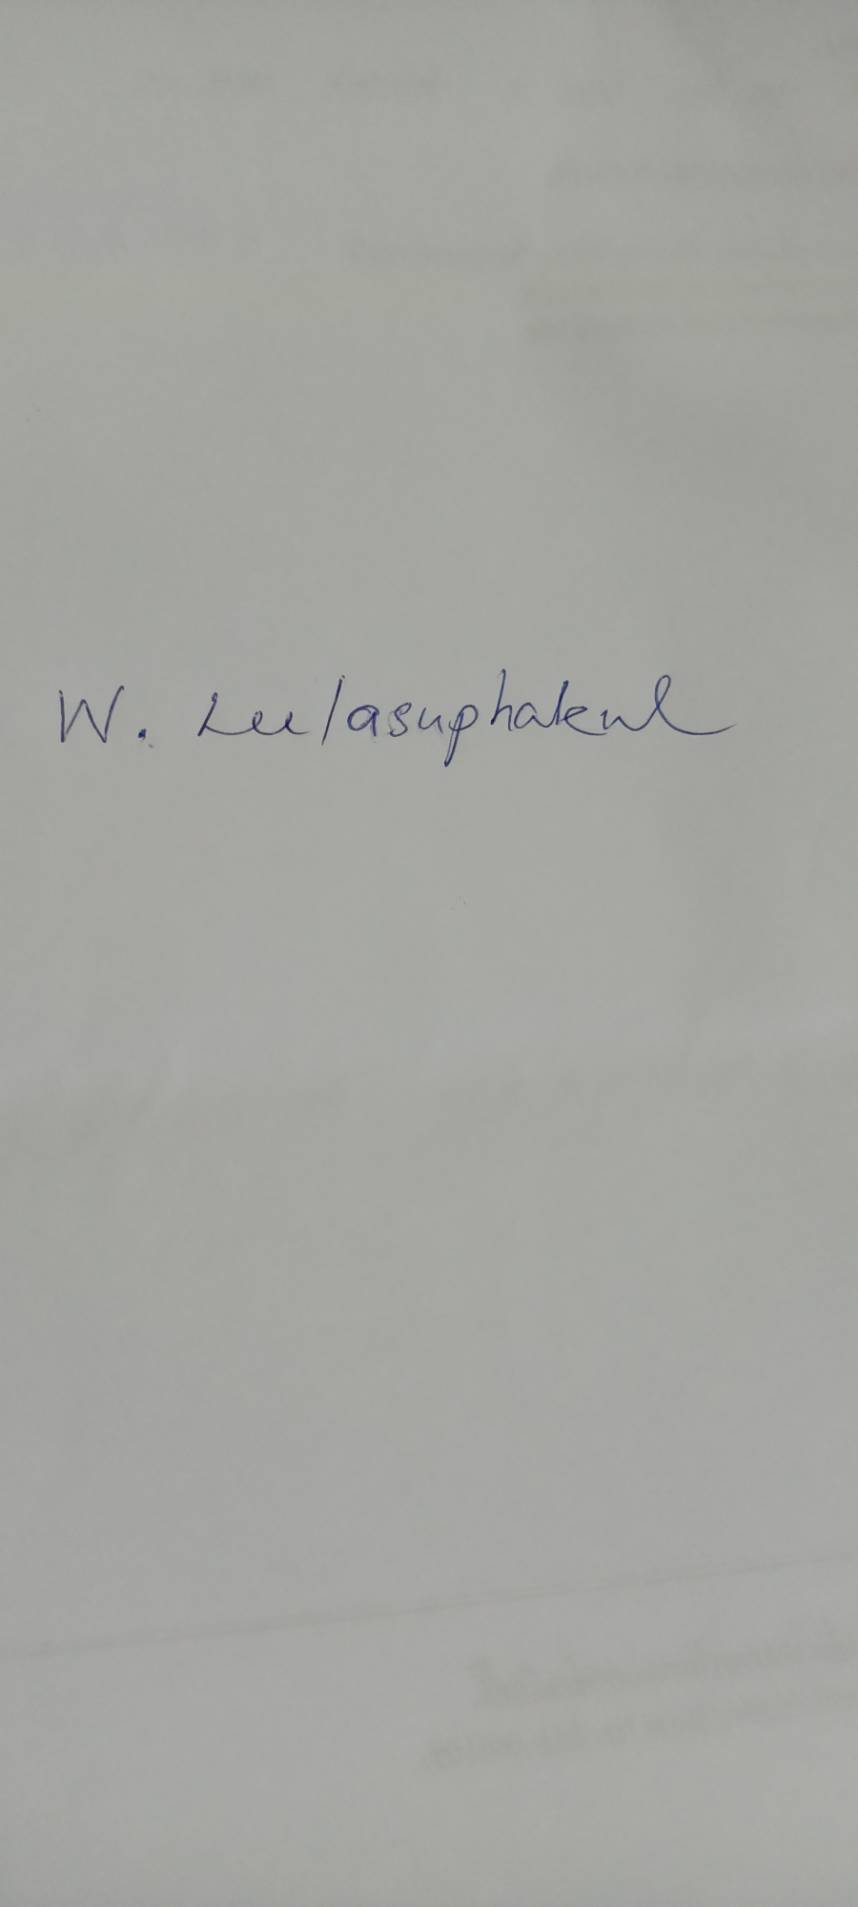 W. Leelasuphakul